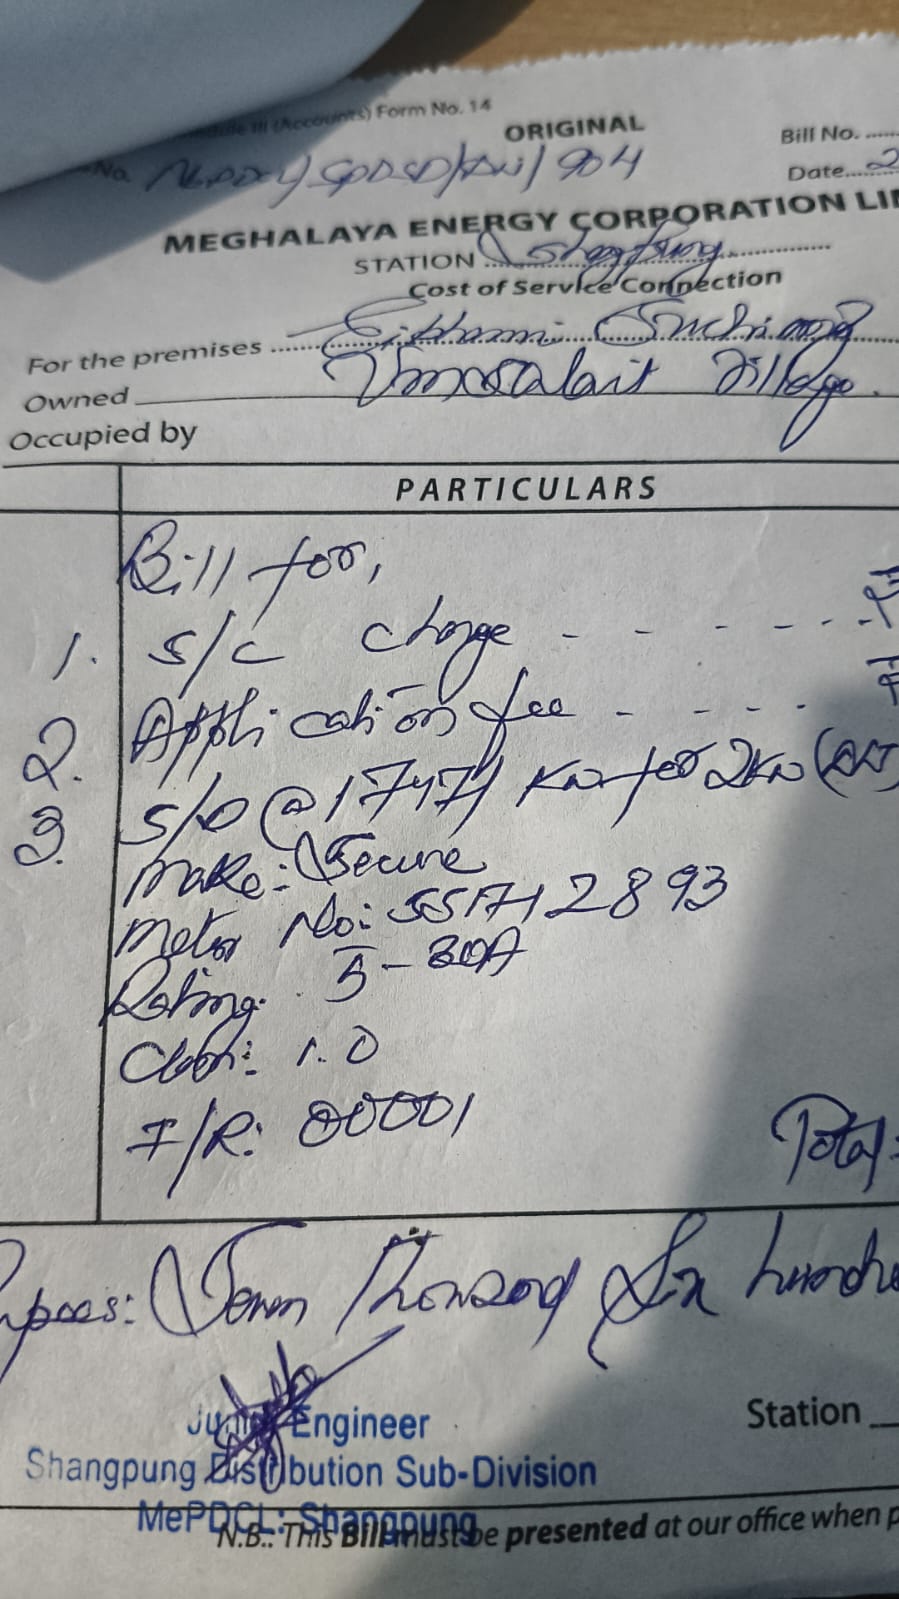 (Accounts) Form No. 14
ORIGINAL
Bill No. ......
No. /904
Date.....2
MEGHALAYA ENERGY CORPORATION LI
STATION Shangpung
Cost of Service Connection
For the premises
Owned Village.
Occupied by
PARTICULARS
Bill for,
1. S/C charge - - - - - - -
2. Application fee - - - - -
3. S/D @ 1747/ KW for 2KW
Make: Secure
Meter No: SS17112893
Rating: 5-30A
Class: 1.0
I/R: 00001
Total
Rupees: Thousand Six hundre
Junior Engineer
Station
Shangpung Distribution Sub-Division
MePDCL: Shangpung
N.B.: This Bill must be presented at our office when p